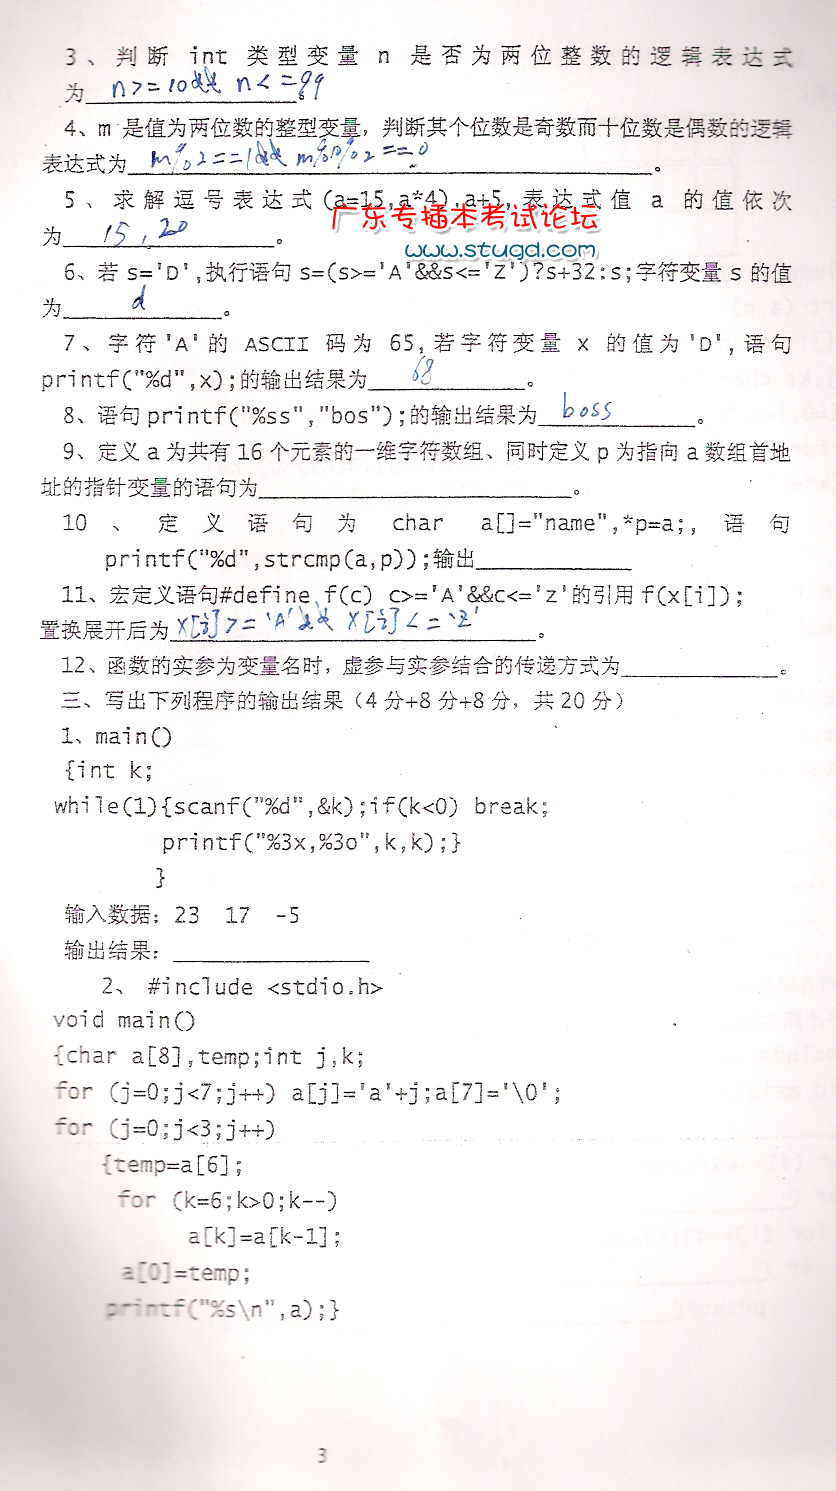 3、判断 int 类型变量 n 是否为两位整数的逻辑表达式
为 n>=10&& n<=99
4、m 是值为两位数的整型变量，判断其个位数是奇数而十位数是偶数的逻辑
表达式为 m%2==1&& m%2==0 。
5、求解逗号表达式(a=15,a*4),a+5,表达式值 a 的值依次
广东专插本考试论坛
为 15,20 。
www.stugd.com
6、若 s='D',执行语句 s=(s>='A'&&s<='Z')?s+32:s;字符变量 s 的值
为 d 。
7、字符'A'的 ASCII 码为 65,若字符变量 x 的值为'D',语句
printf("%d",x);的输出结果为 68 。
8、语句 printf("%ss","bos");的输出结果为 boss 。
9、定义 a 为共有 16 个元素的一维字符数组、同时定义 p 为指向 a 数组首地
址的指针变量的语句为 。
10、定义语句为 char a[]="name",*p=a;,语句
printf("%d",strcmp(a,p));输出
11、宏定义语句#define f(c) c>='A'&&c<='z'的引用 f(x[i]);
置换展开后为 x[i]>='A'&& x[i]<='z' 。
12、函数的实参为变量名时，虚参与实参结合的传递方式为 。
三、写出下列程序的输出结果（4 分+8 分+8 分，共 20 分）
1、main()
{int k;
while(1){scanf("%d",&k);if(k<0) break;
printf("%3x,%3o",k,k);}
}
输入数据：23 17 -5
输出结果：
2、 #include <stdio.h>
void main()
{char a[8],temp;int j,k;
for (j=0;j<7;j++) a[j]='a'+j;a[7]='\0';
for (j=0;j<3;j++)
{temp=a[6];
for (k=6;k>0;k--)
a[k]=a[k-1];
a[0]=temp;
printf("%s\n",a);}
3